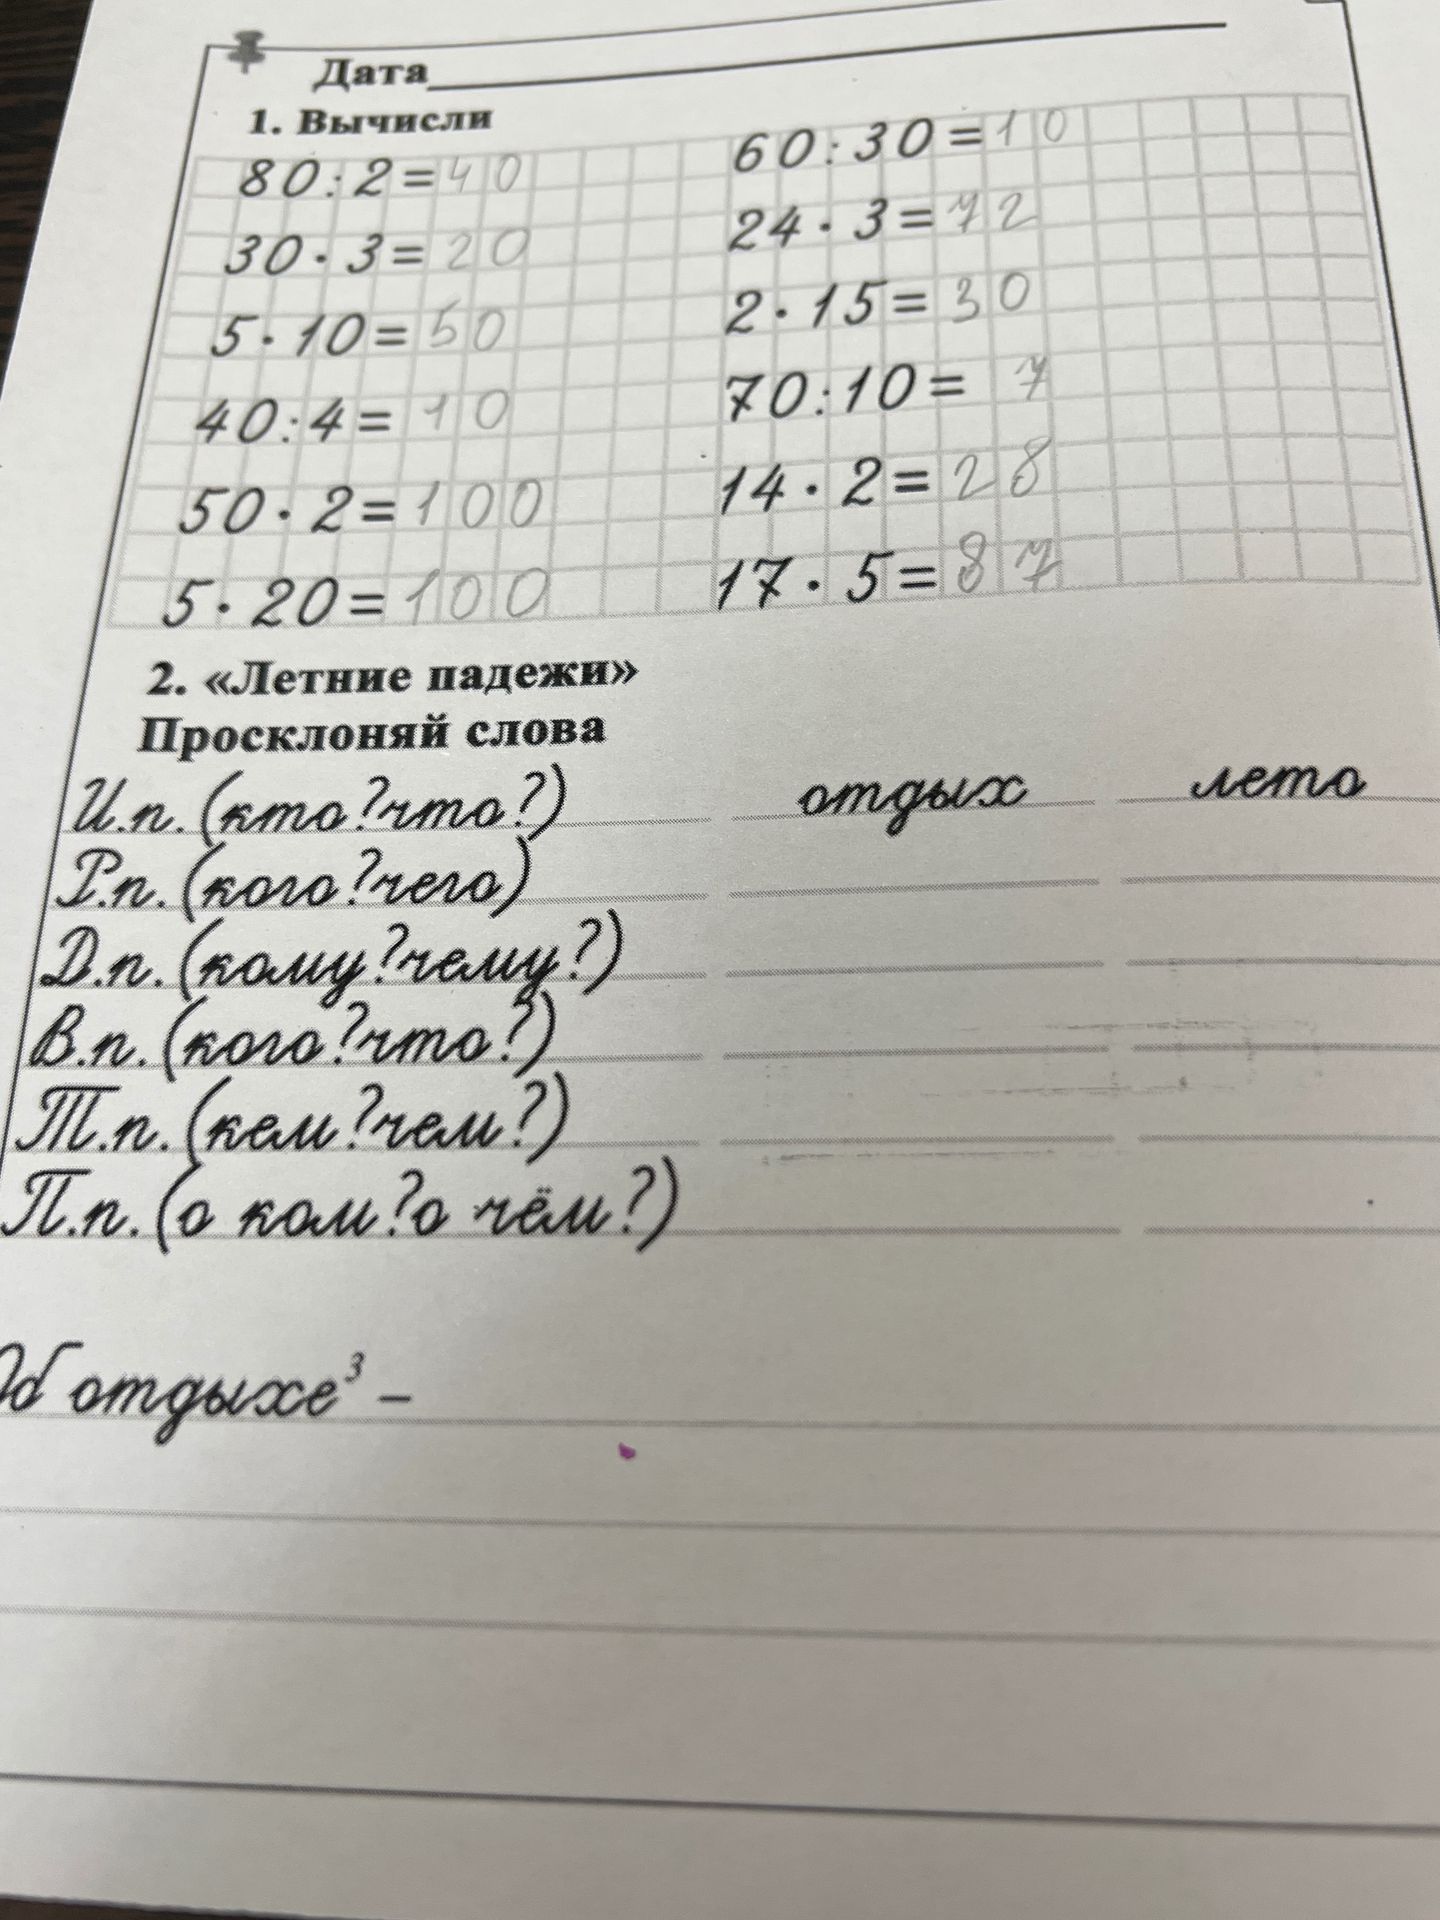 Дата
1. Вычисли
80:2=40 60:30=10
30·3=20 24·3=72
5·10=50 2·15=30
40:4=10 70:10=7
50·2=100 14·2=28
5·20=100 17·5=87
2. «Летние падежи»
Просклоняй слова
И.п. (кто?что?) отдых лето
Р.п. (кого?чего)
Д.п. (кому?чему?)
В.п. (кого?что?)
Т.п. (кем?чем?)
П.п. (о ком?о чём?)
Об отдыхе³ –